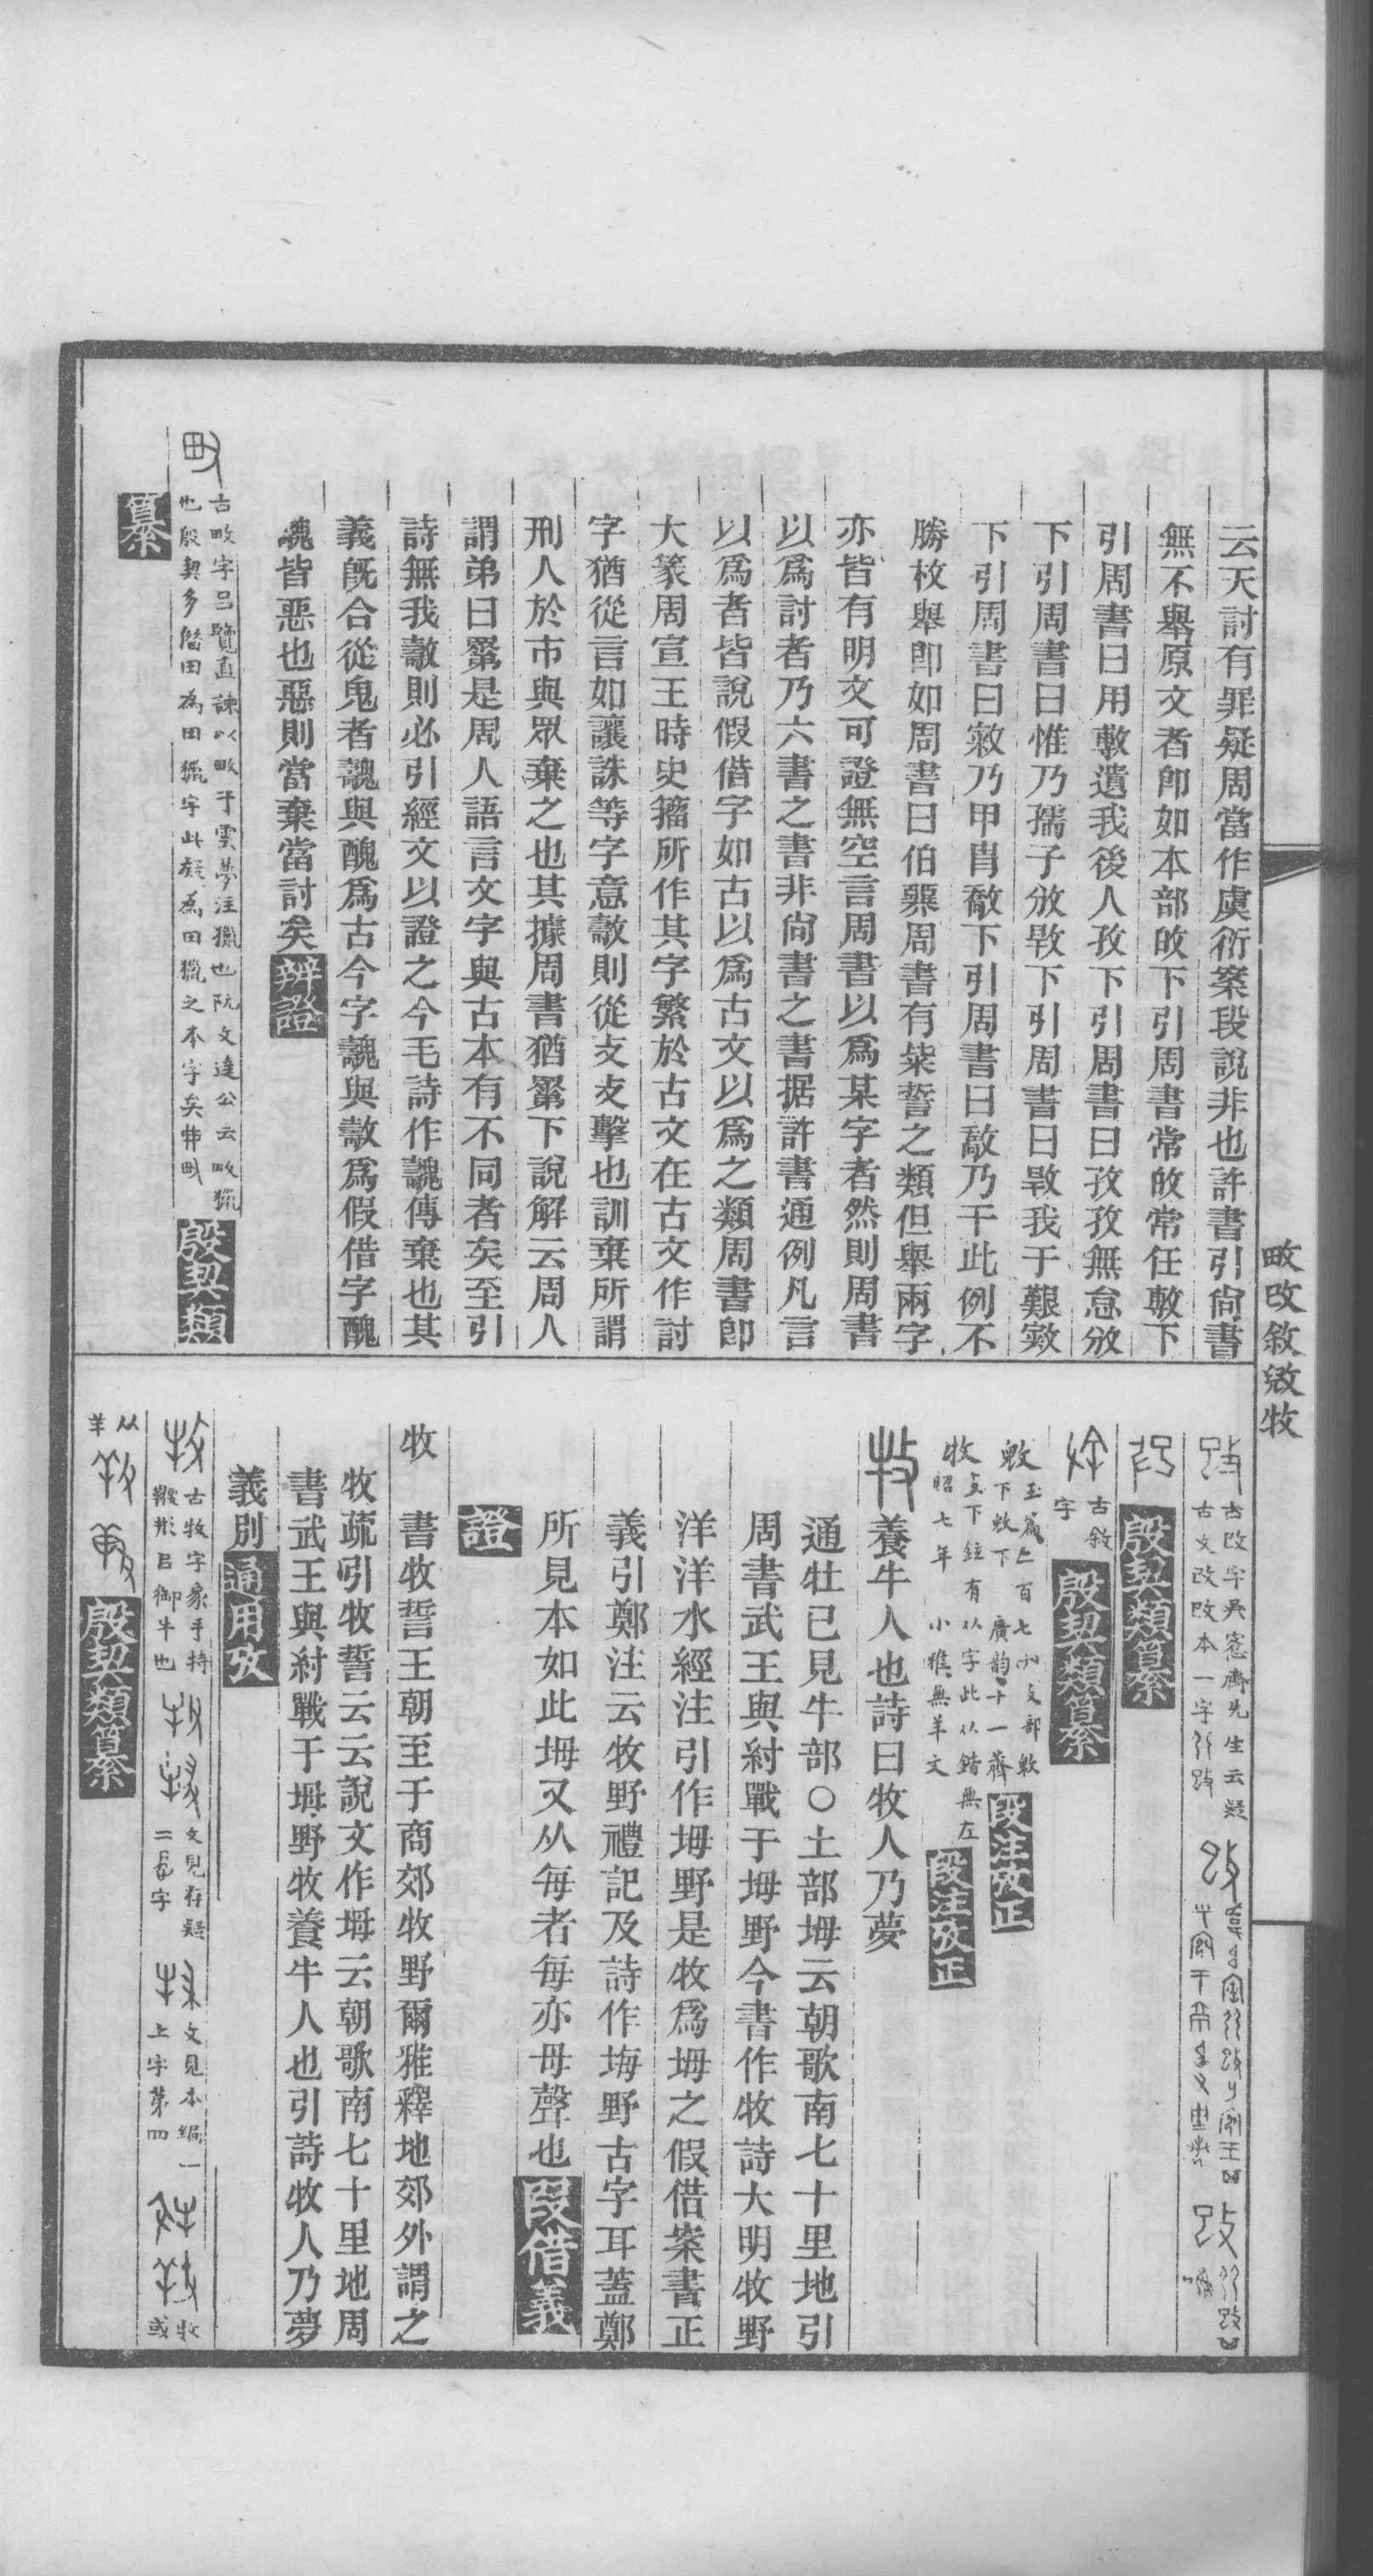 云天討有罪疑周當作虞衍案段說非也許書引尙書
無不舉原文者卽如本部敀下引周書常敀常任敷下
引周書曰用敷遺我後人孜下引周書曰孜孜無怠攽
下引周書曰惟乃孺子攽敃下引周書曰敃我于艱敹
下引周書曰敹乃甲冑敿下引周書曰敿乃干此例不
勝枚舉卽如周書曰伯䍃周書有粊誓之類但舉兩字
亦皆有明文可證無空言周書以爲某字者然則周書
以爲討者乃六書之書非尙書之書据許書通例凡言
以爲者皆說假借字如古以爲古文以爲之類周書卽
大篆周宣王時史籀所作其字繁於古文在古文作討
字猶從言如讓誅等字意𢿢則從攴攴擊也訓棄所謂
刑人於市與眾棄之也其據周書猶𥎊下說解云周人
謂弟曰𥎊是周人語言文字與古本有不同者矣至引
詩無我𢿢則必引經文以證之今毛詩作魗傳棄也其
義旣合從鬼者魗與醜爲古今字魗與𢿢爲假借字醜
魗皆惡也惡則當棄當討矣辨證
畋 古畋字呂覽直諫以畋于雲夢注獵也阮文達公云畋獵
也殷契多借田為田獵字此疑為田獵之本字矣 殷契類
纂
畋改敘敓牧
古改字吳愙齋先生云疑
古文改攺本一字
殷契類纂
古敘
字 殷契類纂
玉篇上百七十攴部
下 廣韵十一薺 段注攷正
牧 下 有从字此从鍇無左
昭七年 小雅無羊文 段注攷正
牧 養牛人也詩曰牧人乃夢
通牡已見牛部〇土部坶云朝歌南七十里地引
周書武王與紂戰于坶野今書作牧詩大明牧野
洋洋水經注引作坶野是牧爲坶之假借案書正
義引鄭注云牧野禮記及詩作坶野古字耳蓋鄭
所見本如此坶又从每者每亦母聲也段借義
證
牧 書牧誓王朝至于商郊牧野爾雅釋地郊外謂之
牧疏引牧誓云云說文作坶云朝歌南七十里地周
書武王與紂戰于坶野牧養牛人也引詩牧人乃夢
義別通用攷
古牧字象手持
鞭形㠯御牛也 文見存疑
二 字 文見本編一
上字第四 牧
或
从
羊 殷契類纂